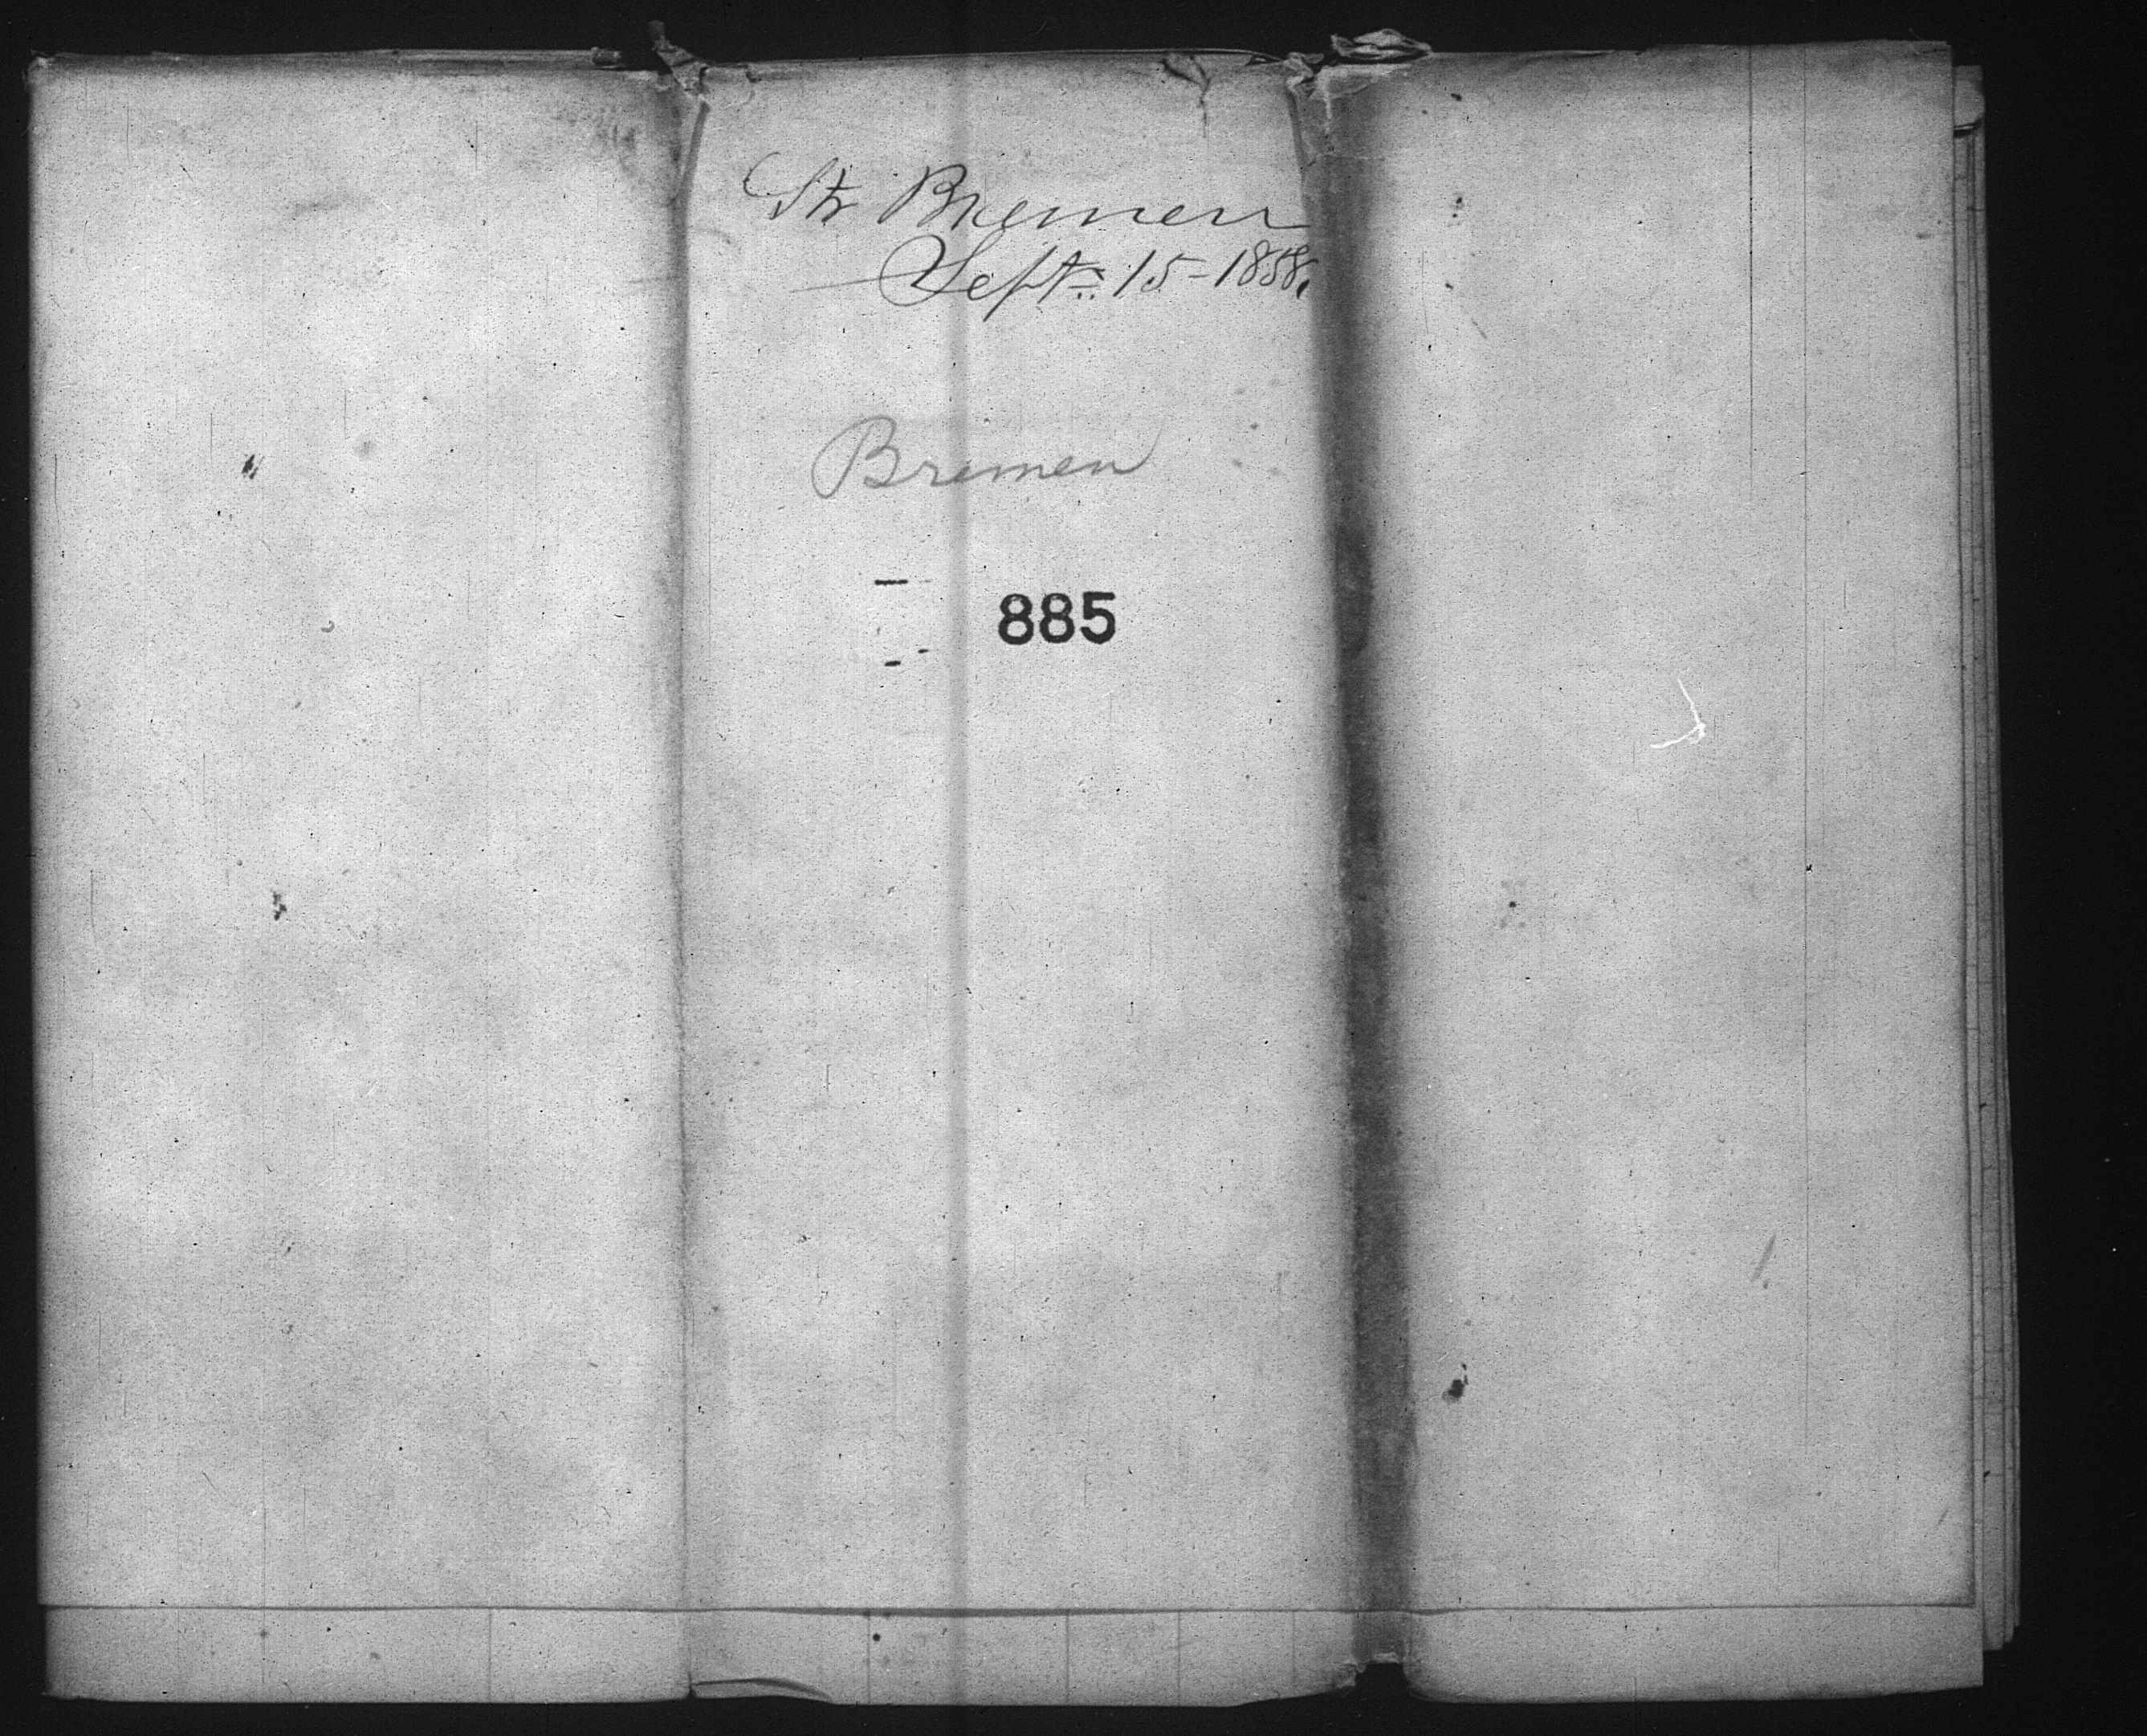 Str Bremen
Sept. 15-1858.
Bremen
885